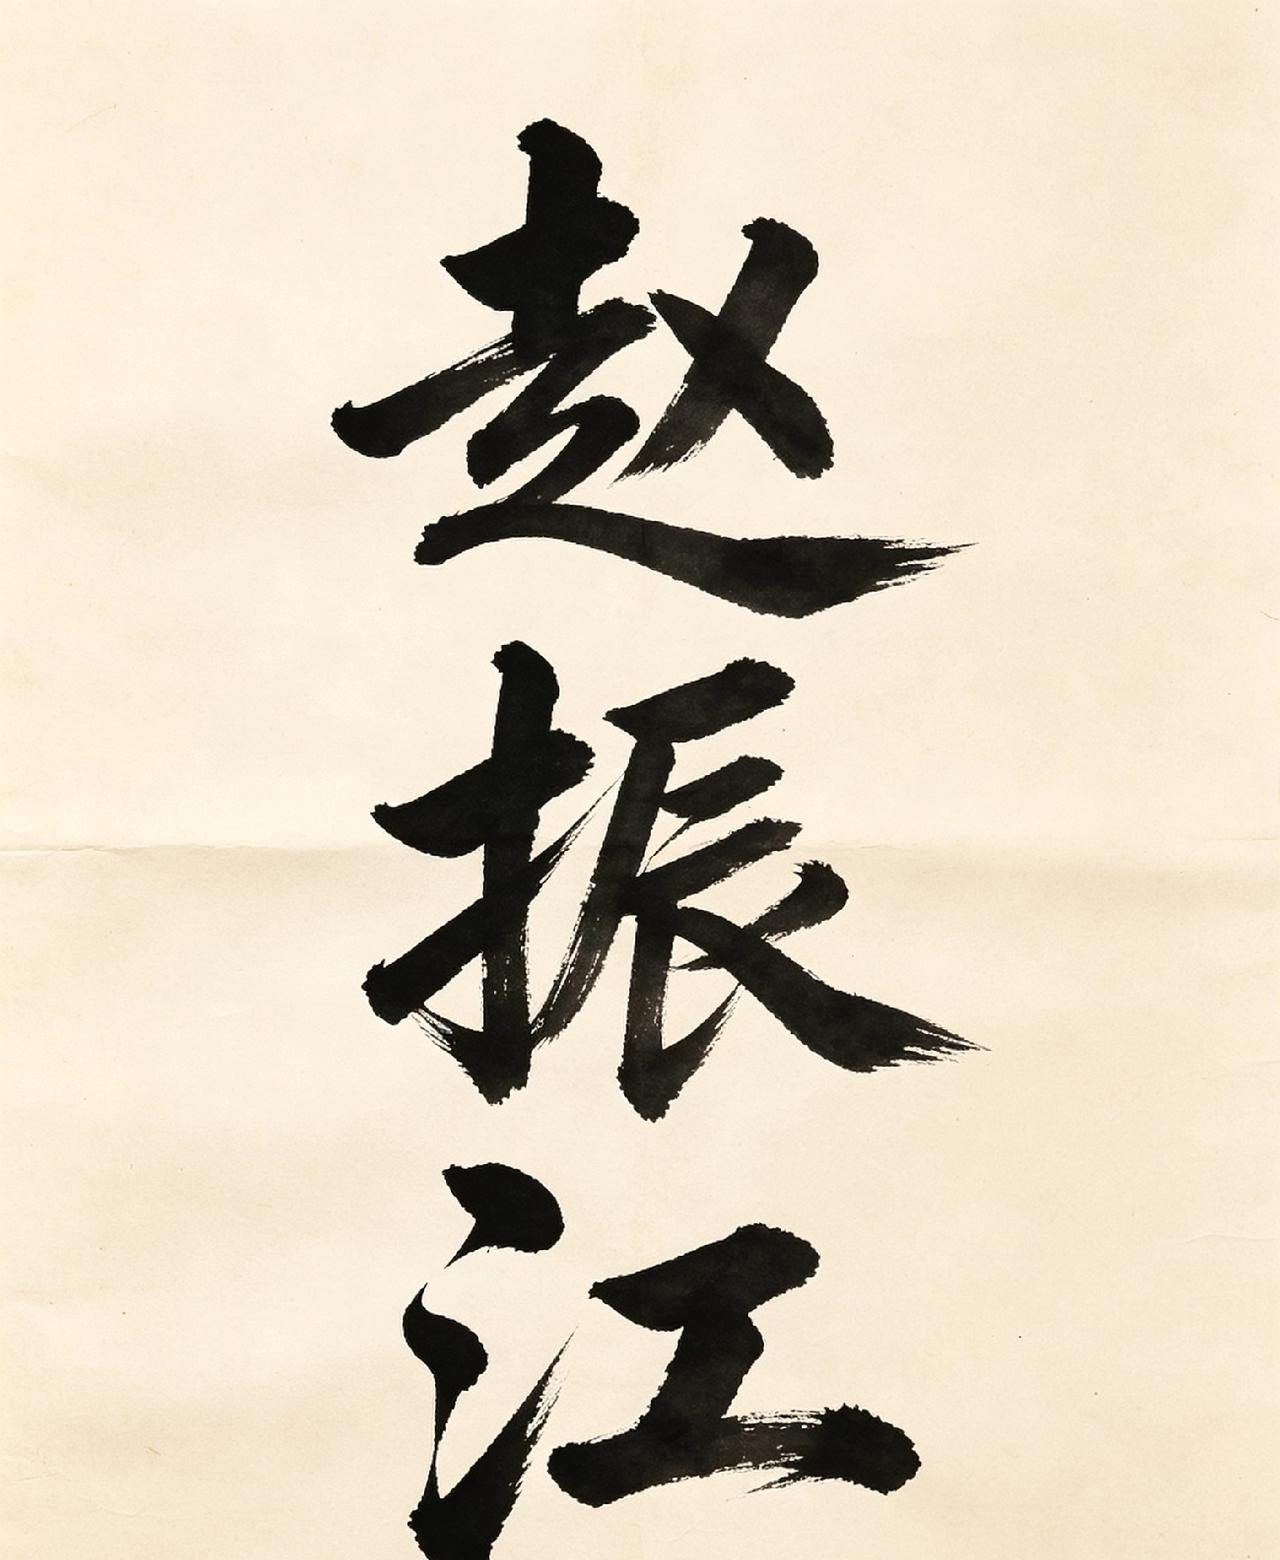 赵振江